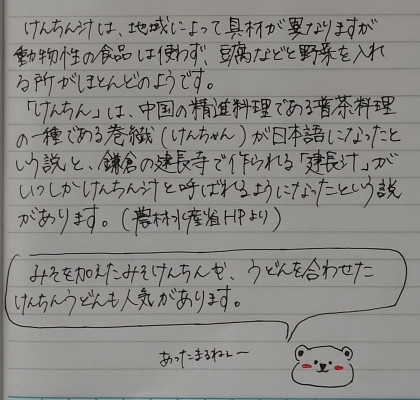 けんちん汁は、地域によって具材が異なりますが
動物性の食品は使わず、豆腐などと野菜を入れ
る所がほとんどのようです。
「けんちん」は、中国の精進料理である普茶料理
の一種である巻繊(けんちゃん)が日本語になったと
いう説と、鎌倉の建長寺で作られる「建長汁」が
いつしかけんちん汁と呼ばれるようになったという説
があります。(農林水産省HPより)
みそを加えたみそけんちんや、うどんを合わせた
けんちんうどんも人気があります。
あったまるねぇー